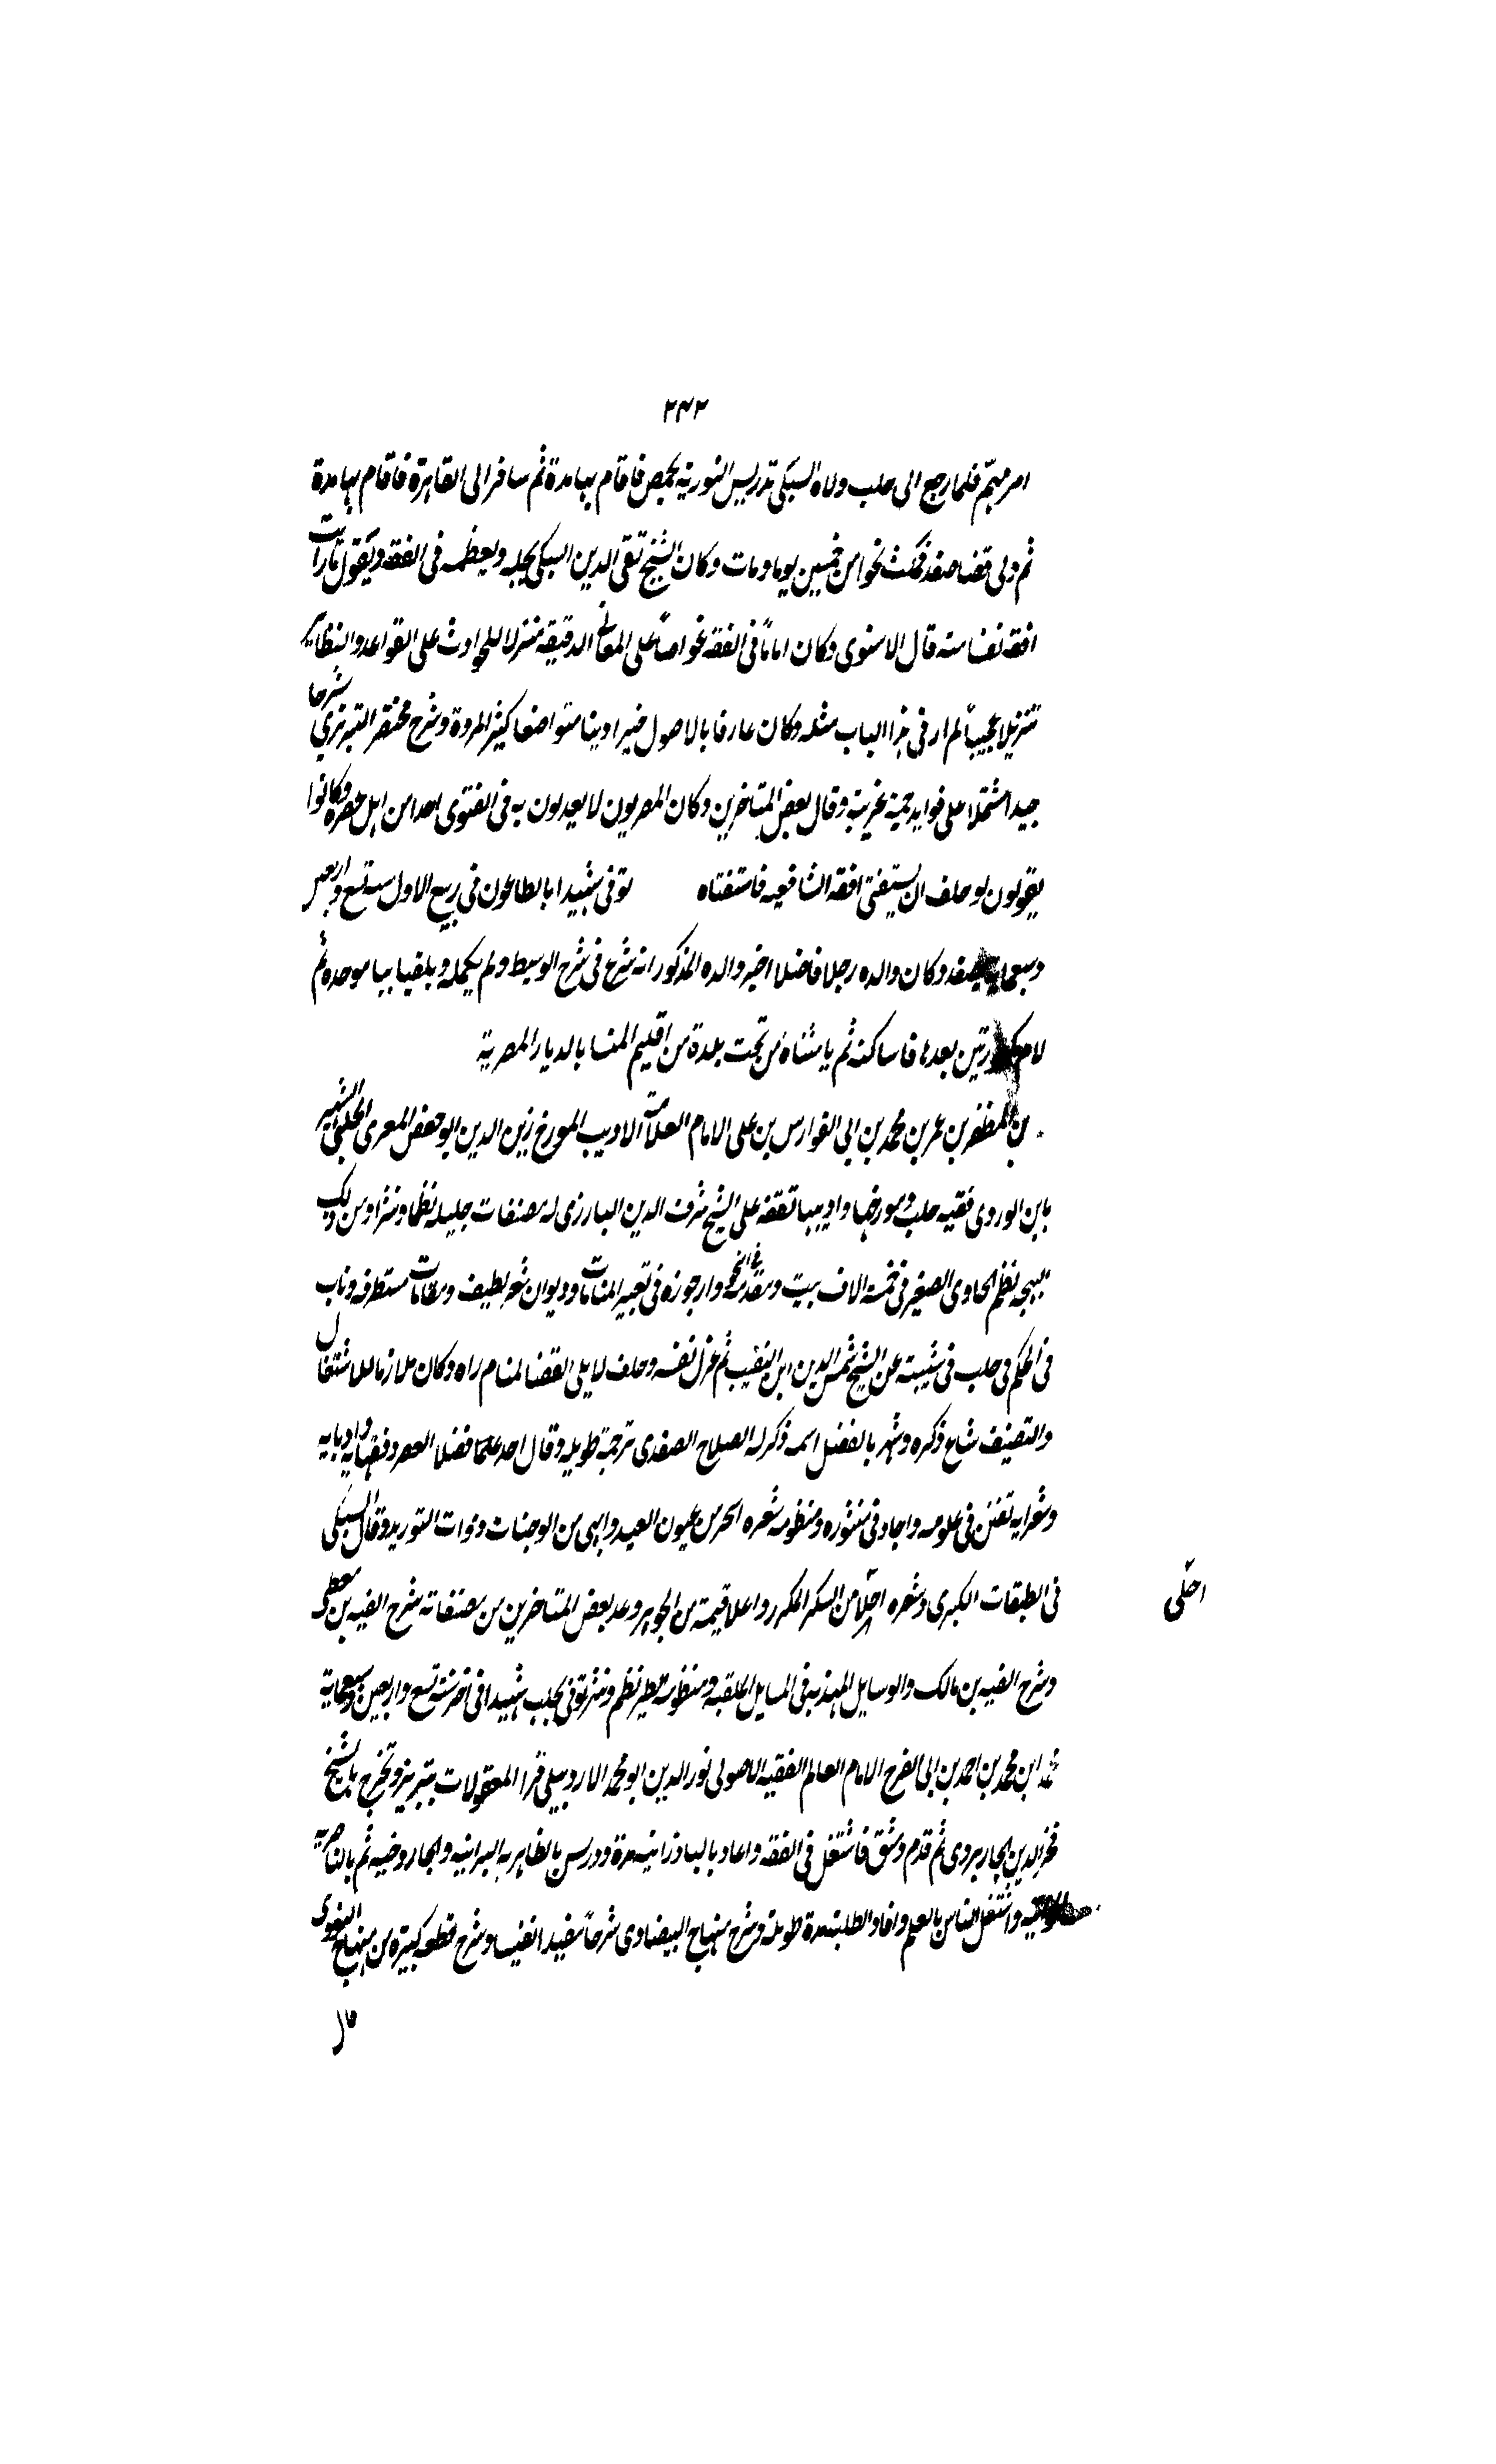 ٢٤٢
امر مهمّ فلما رجع الى حلب ولاه السبكى تدريس النورية بحمص فاقام بها مدة ثم سافر الى القاهرة فاقام بها مدة
ثم ولى قضا صفد فمكث نحوا من خمسين يوما ومات وكان الشيخ تقى الدين السبكى يجله ويعظمه فى الفقه ويقول ما رايت
افقه نفسا منه قال الاسنوى وكان اماماً فى الفقه غواصاً على المعانى الدقيقة منزلا للحوادث على القواعد والنظاير
تنزيلا عجيباً لم ار فى هذا الباب مثله وكان عارفا بالاصول خيرا دينا متواضعا كثير المروة وشرح مختصر التبريزى شرحا
جيدا مشتملا على فوايد جمة غريبة وقال بعض المتاخرين وكان المصريون لا يعدلون به فى الفتوى احدا من اهل عصره وكانوا
يقولون لو حلف ان يستفتى افقه الشافعيه فاستفتاه توفى شهيدا بالطاعون فى ربيع الاول سنه تسع واربعين
وسبعمايه بصفد وكان والده رجلا فاضلا اخبر والده المذكور انه شرع فى شرح الوسيط ولم يكمله وبلقيا ببا موحده ثم
لام بعدها قاف ساكنه ثم يا مثناه من تحت بلدة من اقليم بالديار المصرية
بن المظفر بن عمر بن محمد بن ابى الفوارس بن على الامام العلامة الاديب المورخ زين الدين ابو حفص المعرى الحلبى الشهير
بابن الوردى فقيه حلب ومورخها واديبها تفقه على الشيخ شرف الدين البارزى له مصنفات جليله نظما ونثرا ومن ذلك
البهجه نظم الحاوى الصغير فى خمسة الاف بيت ومقدمة فى النحو وارجوزه فى تعبير المنامات وديوان شعر لطيف ومقامات مستطرفه وناب
فى الحكم فى حلب فى شبيبته عن الشيخ شمس الدين ابن النقيب ثم عزل نفسه وحلف لا يلى القضا لمنام راه وكان ملازما للاشتغال
والتصنيف شاع ذكره وشهر بالفضل اسمه ذكر له الصلاح الصفدى ترجمة طويله وقال احد فضلا العصر وفقهايه وادبايه
وشعرايه تفنن فى علومه واجاد فى منثوره ومنظومه شعره اسحر من عيون الغيد وابهى من الوجنات ذوات التوريد وقال السبكى
فى الطبقات الكبرى وشعره احلا من السكر المكرر واعلا قيمة من الجوهر وعد بعض المتاخرين من مصنفاته شرح الفيه بن معطى
احلى
وشرح الفيه بن مالك والوسايل المهذبه فى المسايل الملقبه ومنظومه نظم ونثر توفى بحلب شهيدا فى اخر سنه تسع واربعين وسبعماية
ابن محمد بن احمد بن ابى الفرج الامام العالم الفقيه الاصولى نور الدين ابو محمد الاردبيلى قرا المعقولات بتبريز وتخرج بالشيخ
فخر الدين الجاربردى ثم قدم دمشق فاشتغل فى الفقه واعاد بالبادرانيه مدة ودرس بالظاهريه البرانيه والجاروخيه ثم بالناصريه
واشتغل الناس بالعلم وافاد الطلبة مدة طويلة وشرح منهاج البيضاوى شرحاً مفيدا نفيسا وشرح قطعه كبيرة من منهاج النووى